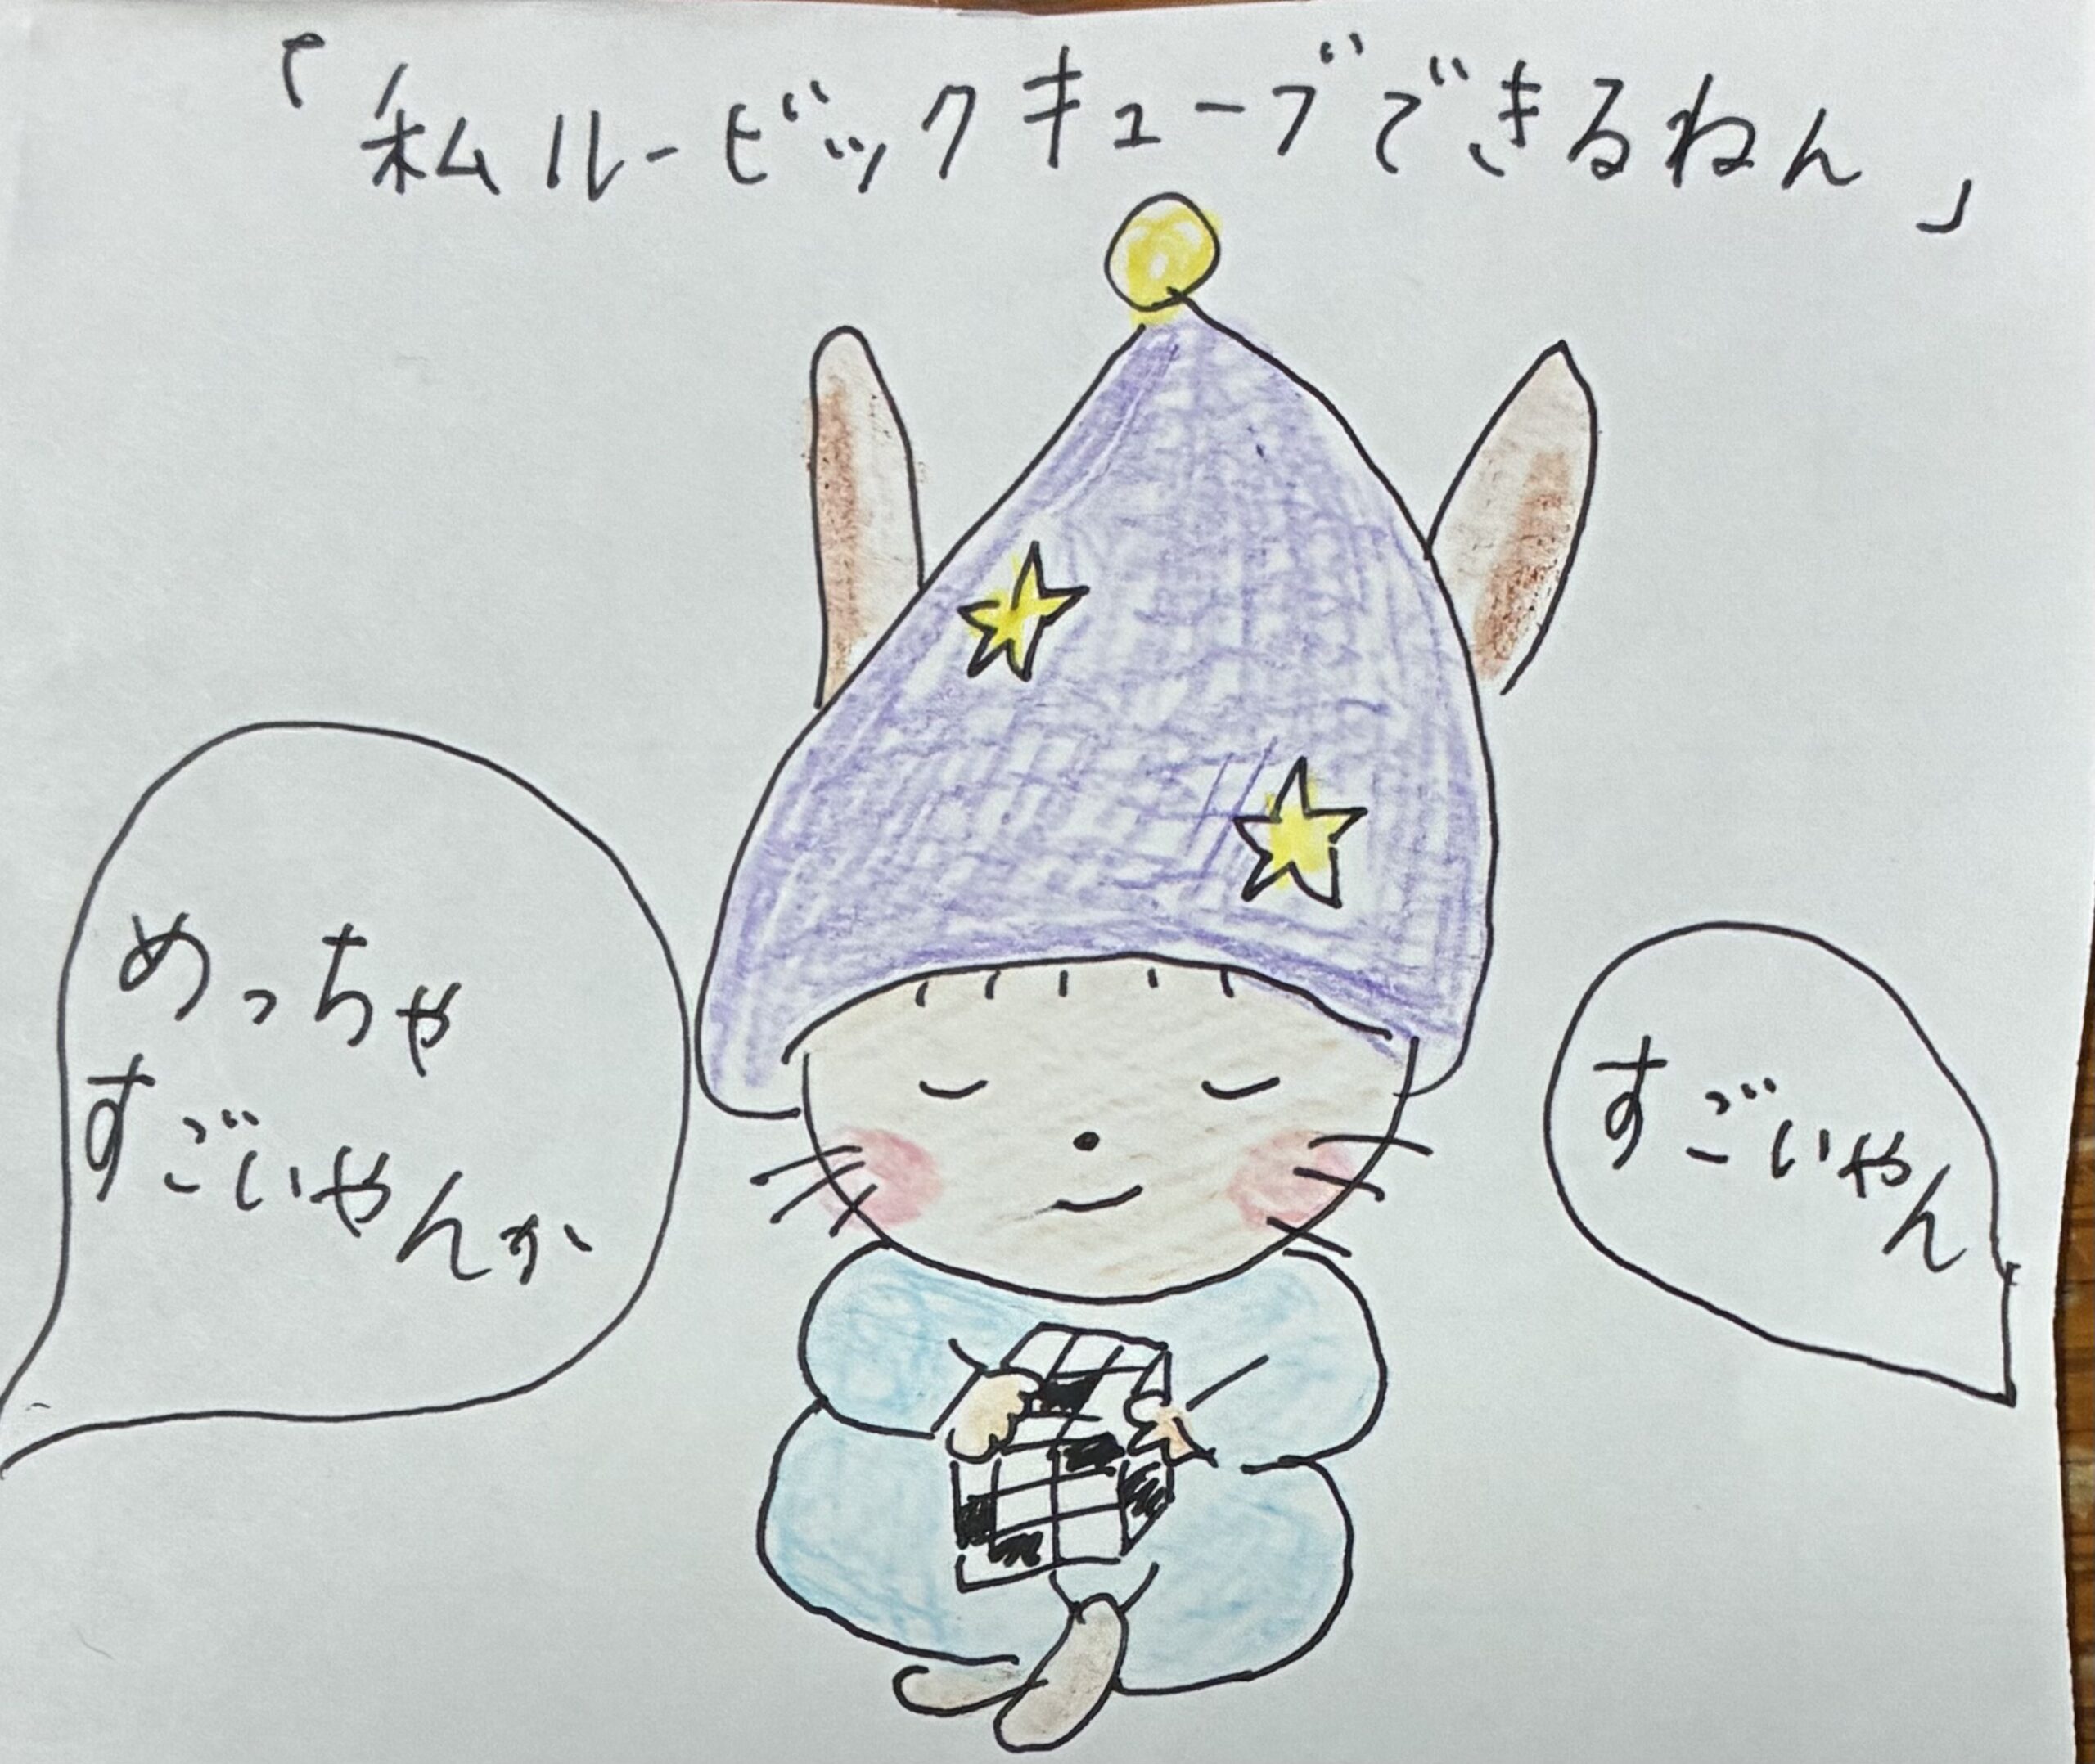 「私ルービックキューブできるねん」
めっちゃ
すごいやんか
すごいやん